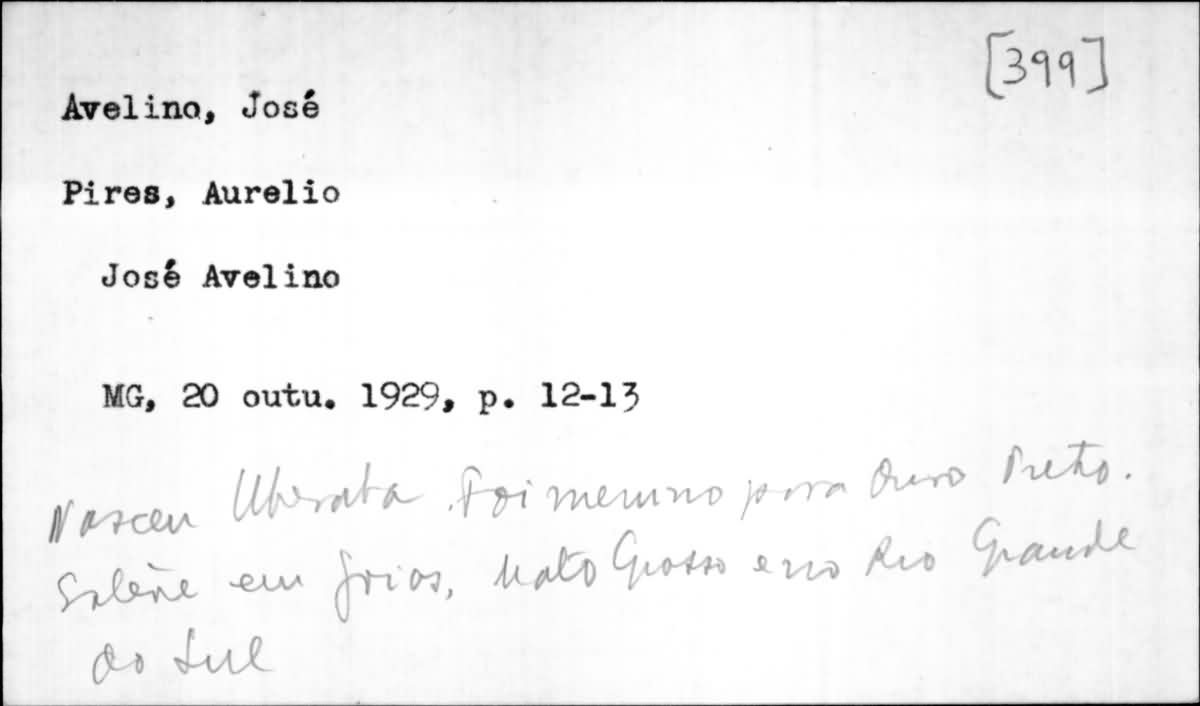 [399]
Avelino, José
Pires, Aurelio
José Avelino
MG, 20 outu. 1929, p. 12-13
Nasceu Uberaba. Foi menino para Ouro Preto.
em Goias, Mato Grosso e no Rio Grande
do Sul